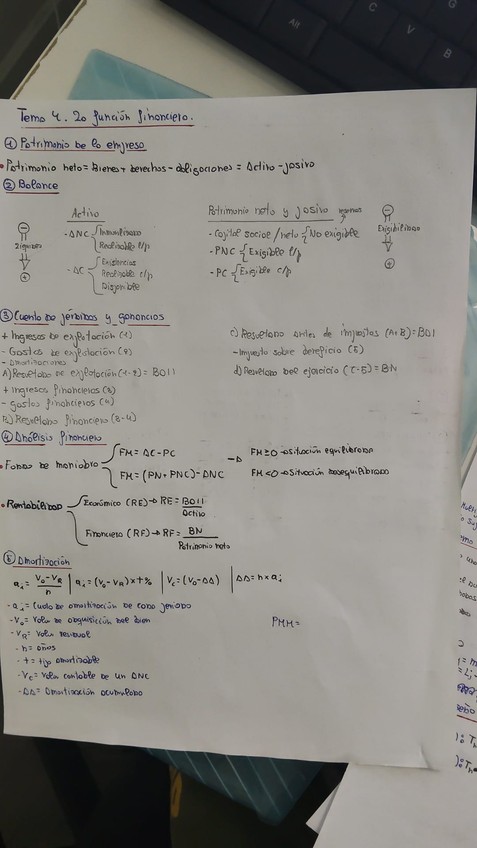 Tema 4. La función financiera.
① Patrimonio de la empresa
• Patrimonio neto = Bienes + derechos - obligaciones = Activo - pasivo
② Balance
Activo
- ANC { Inmovilizado
Realizable l/p
- AC { Existencias
Realizable c/p
Disponible
⊖
Liquidez
⊕
Patrimonio neto y pasivo
- Capital social/neto { No exigible
- PNC { Exigible l/p
- PC { Exigible c/p
⊖
Exigibilidad
⊕
③ Cuenta de pérdidas y ganancias
+ Ingresos de explotación (1)
- Gastos de explotación (2)
- Amortizaciones
A) Resultado de explotación (1-2) = BAII
+ ingresos financieros (3)
- gastos financieros (4)
B) Resultado financiero (3-4)
C) Resultado antes de impuestos (A+B) = BAI
- Impuesto sobre beneficio (5)
d) Resultado del ejercicio (C-5) = BN
④ Análisis financiero
• Fondo de maniobra
FM = AC - PC
FM = (PN + PNC) - ANC
→ FM ≥ 0 → situación equilibrada
FM < 0 → situación desequilibrada
• Rentabilidad
Económica (RE) → RE = BAII / Activo
Financiera (RF) → RF = BN / Patrimonio neto
⑤ Amortización
aᵢ = V₀ - V_R / n | aᵢ = (V₀ - V_R) x t% | V_c = (V₀ - AA) | AA = n x aᵢ
- aᵢ = Cuota de amortización de cada periodo
- V₀ = Valor de adquisición del bien
- V_R = Valor residual
- n = años
- t = tipo amortizable
- V_c = Valor contable de un ANC
- AA = Amortización acumulada
PMM =
Alt
C
V
B
G